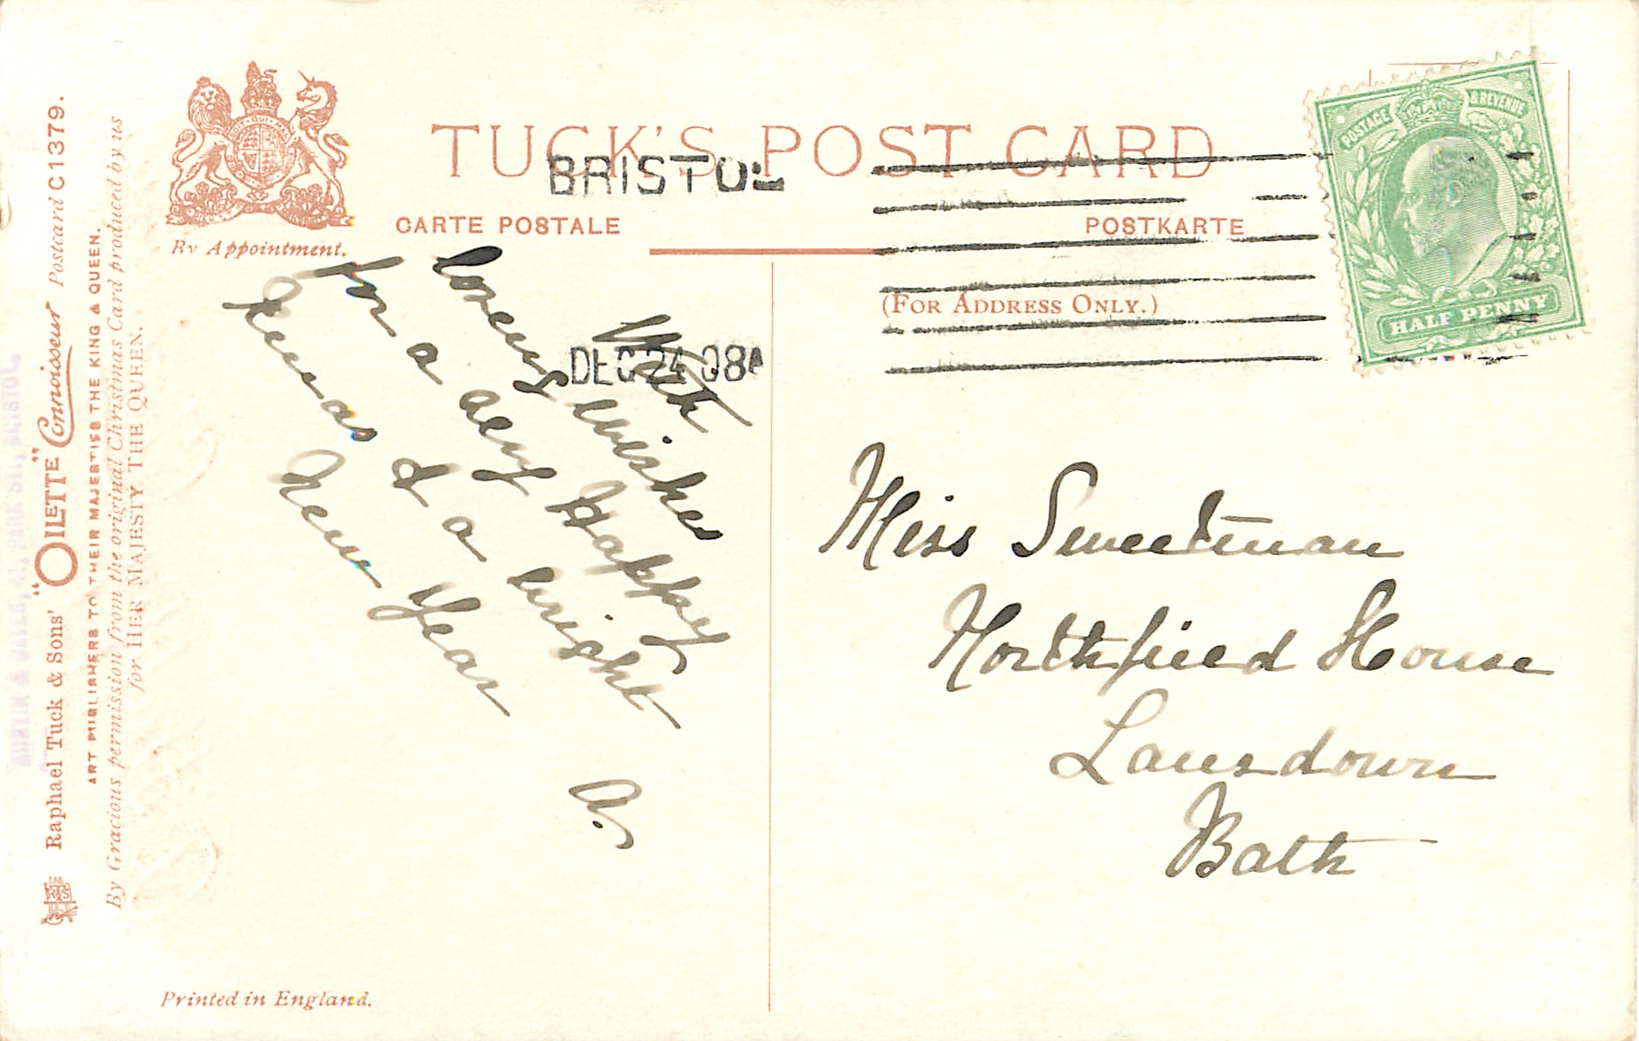 TUCK'S POST CARD
BRISTOL
CARTE POSTALE
POSTKARTE
By Appointment.
(FOR ADDRESS ONLY.)
DEC 24 08
POSTAGE & REVENUE
HALF PENNY
With
loving wishes
for a very Happy
Xmas & a bright
New Year
A.
Miss Sweetman
Northfield House
Lansdown
Bath
Raphael Tuck & Sons' "OILETTE" Connoisseur Postcard C 1379.
ART PUBLISHERS TO THEIR MAJESTIES THE KING & QUEEN.
By Gracious permission from the original Christmas Card produced by us
for HER MAJESTY THE QUEEN.
Printed in England.